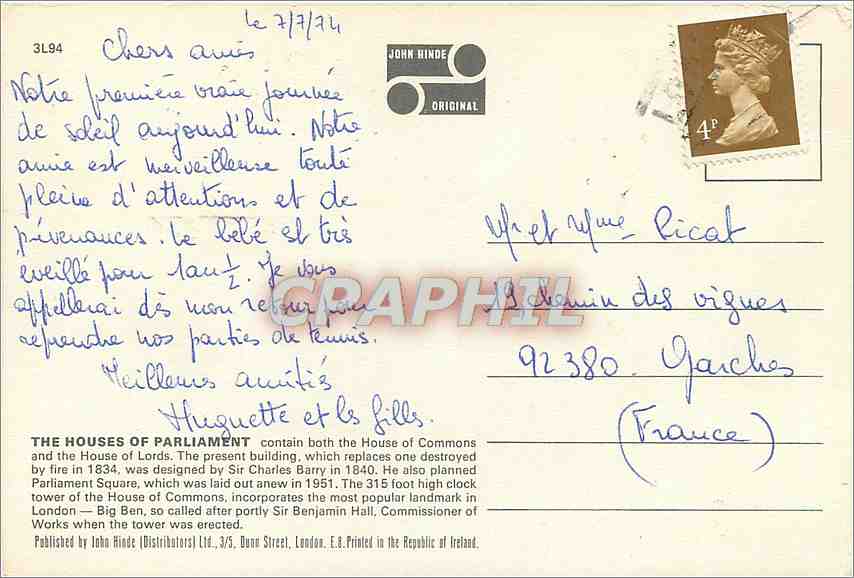 le 7/7/74
3L94
Chers amis
JOHN HINDE
ORIGINAL
4P
Notre première vraie journée
de soleil aujourd'hui. Notre
amie est merveilleuse toute
pleine d'attentions et de
prévenances. Le bébé est très
éveillé pour 1 an 1/2. Je vous
appellerai dès mon retour pour
reprendre nos parties de tennis.
Meilleures amitiés
Huguette et les filles.
Mr et Mme Picat
19 chemin des vignes
92380. Garches
(France)
CPAPHIL
THE HOUSES OF PARLIAMENT contain both the House of Commons
and the House of Lords. The present building, which replaces one destroyed
by fire in 1834, was designed by Sir Charles Barry in 1840. He also planned
Parliament Square, which was laid out anew in 1951. The 315 foot high clock
tower of the House of Commons, incorporates the most popular landmark in
London — Big Ben, so called after portly Sir Benjamin Hall, Commissioner of
Works when the tower was erected.
Published by John Hinde (Distributors) Ltd., 3/5, Dunn Street, London, E.8. Printed in the Republic of Ireland.